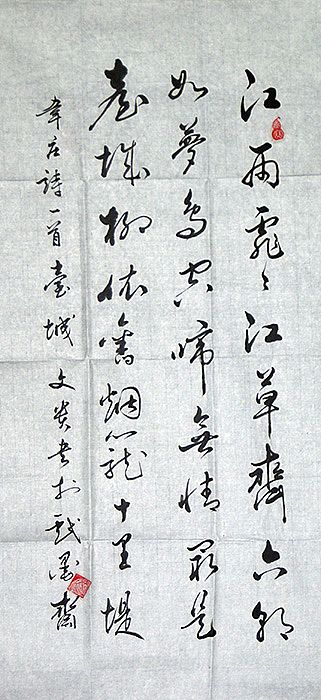 江雨霏々江草齊六朝
如夢鳥空啼無情最是
臺城柳依舊烟籠十里堤
韋庄詩一首臺城 文書於墨齋